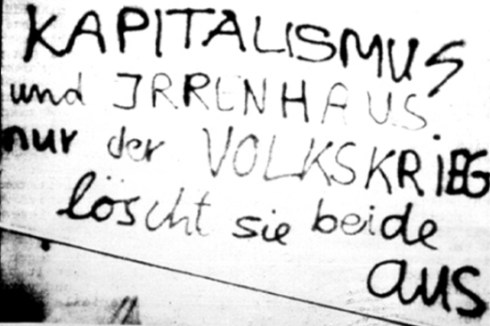 KAPITALISMUS
und IRRENHAUS
nur der VOLKSKRiEG
löscht sie beide
aus